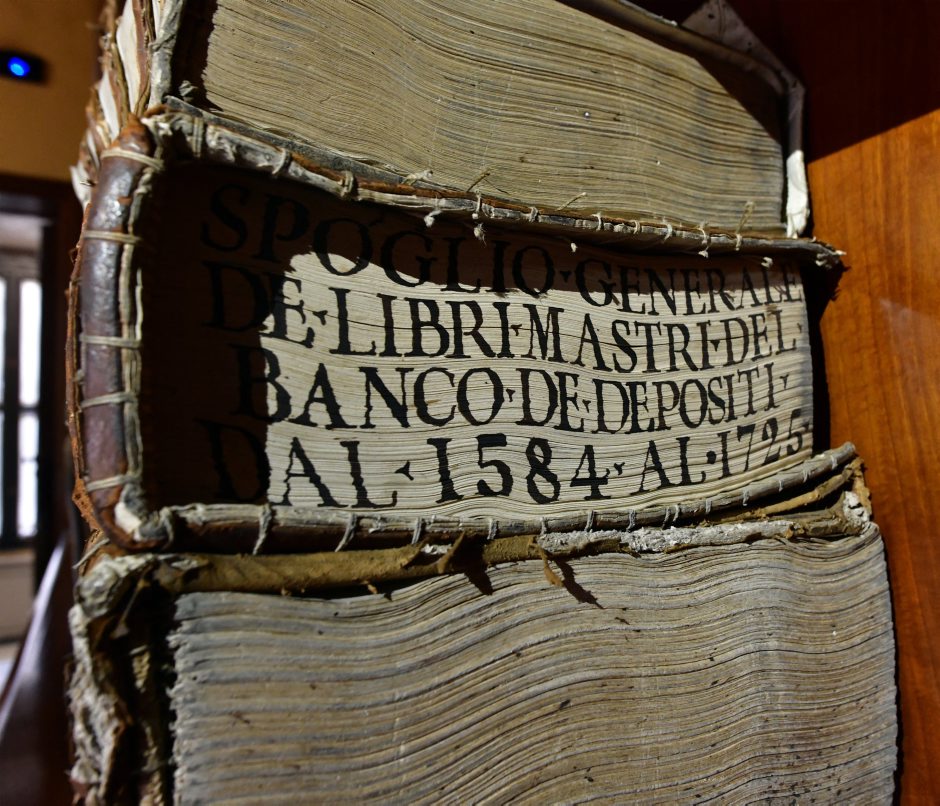 SPOGLIO·GENERALE
DE·LIBRI·MASTRI·DEL·
BANCO·DE·DEPOSITI·
DAL·1584·AL·1725·